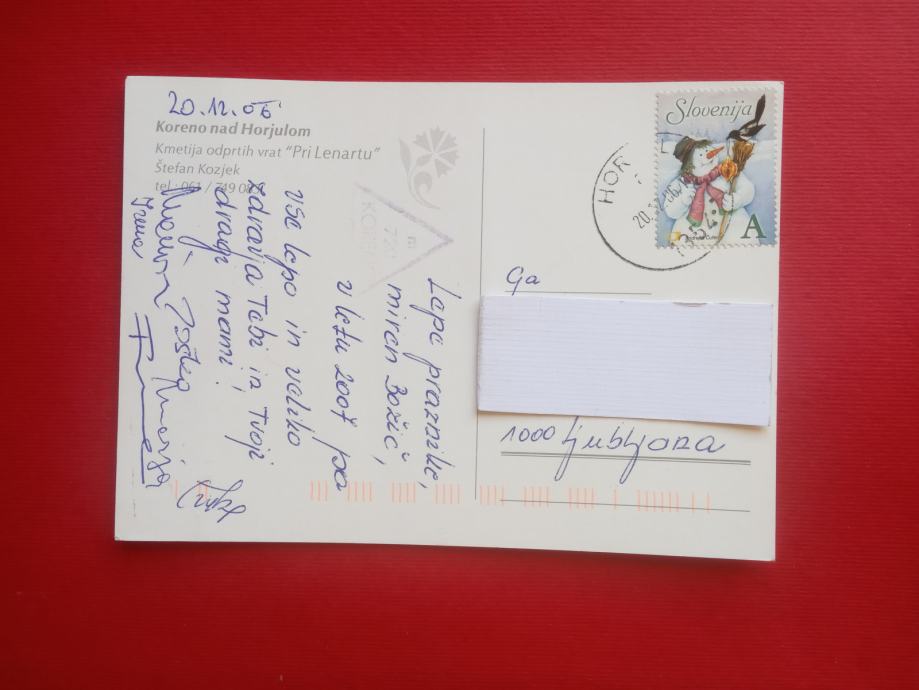 20.12.06
Koreno nad Horjulom
Kmetija odprtih vrat "Pri Lenartu"
Štefan Kozjek
tel.: 061 / 749 08
Lepe praznike,
miren Božič,
v letu 2007 pa
vse lepo in veliko
zdravja Tebi in Tvoji
dragi mami!
Joško
Irena
Slovenija
A
HOR L
1354
Ga
1000 Ljubljana